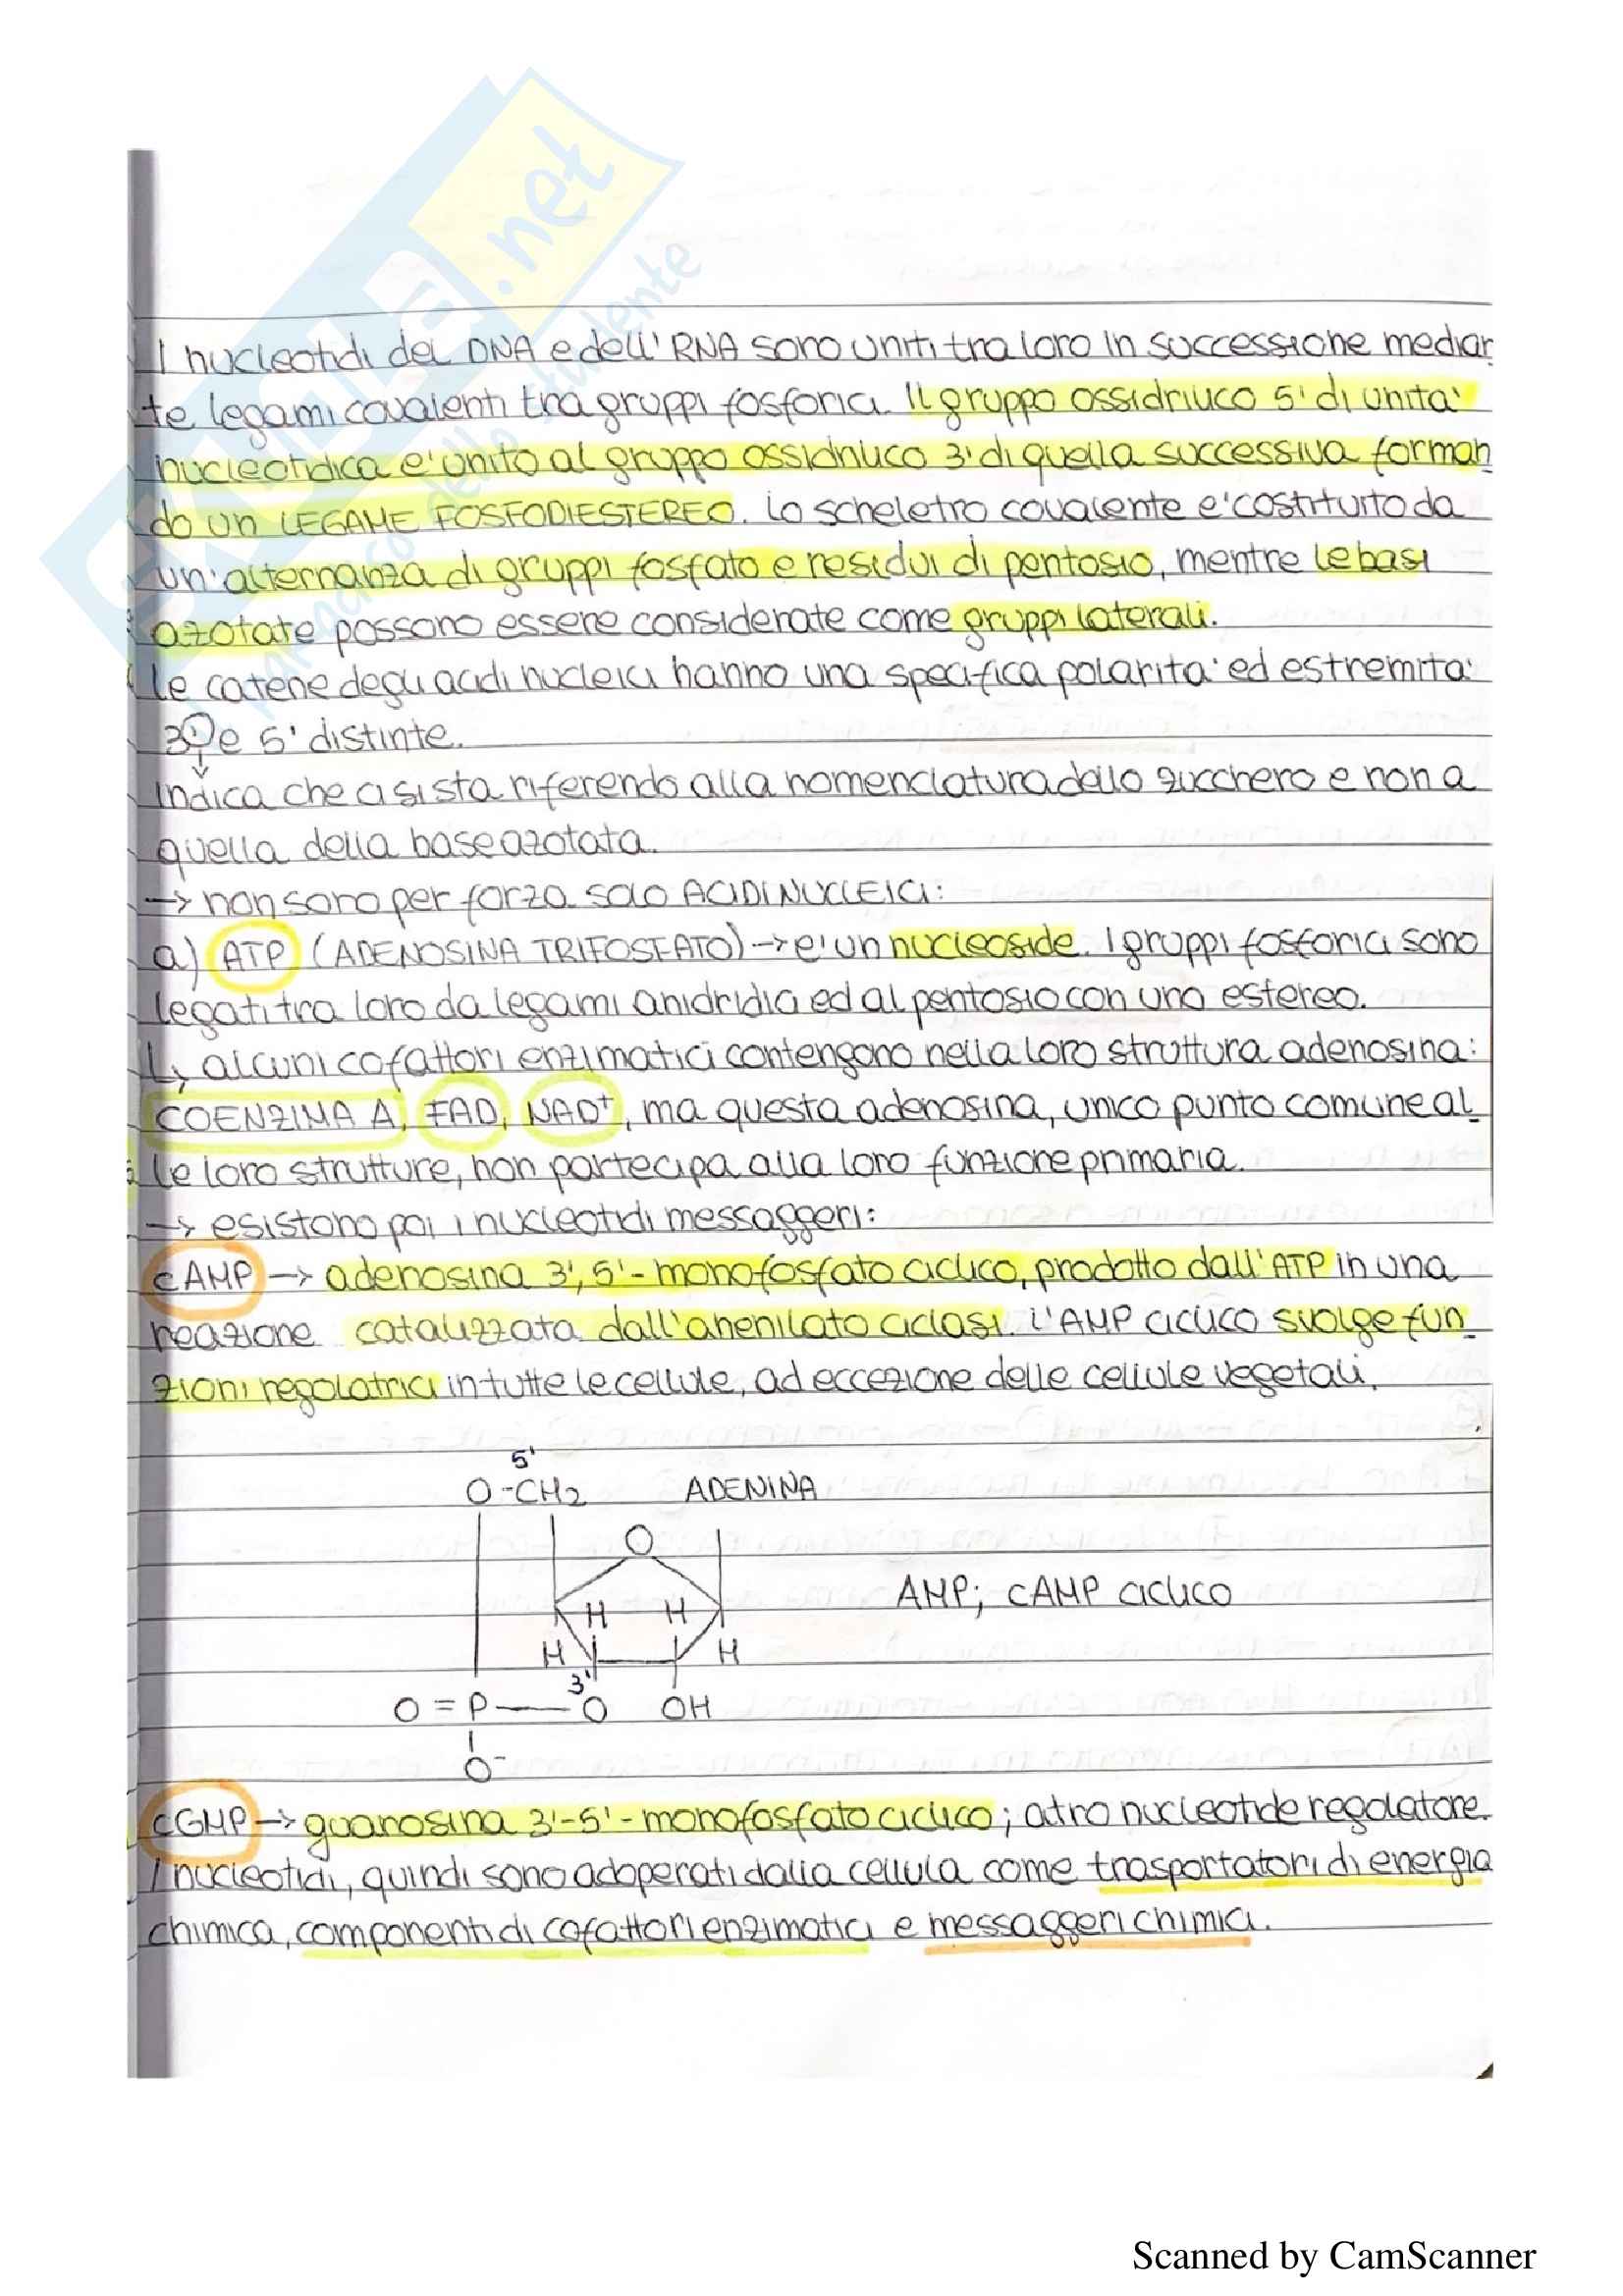 I nucleotidi del DNA e dell'RNA sono uniti tra loro in successione median
te legami covalenti tra gruppi fosforici. Il gruppo ossidrilico 5' di unita'
nucleotidica e' unito al gruppo ossidrilico 3' di quella successiva forman
do un LEGAME FOSFODIESTEREO. Lo scheletro covalente e' costituito da
un'alternanza di gruppi fosfato e residui di pentosio, mentre le basi
azotate possono essere considerate come gruppi laterali.
Le catene degli acidi nucleici hanno una specifica polarita' ed estremita'
3' e 5' distinte.
Indica che ci si sta riferendo alla nomenclatura dello zucchero e non a
quella della base azotata.
→ non sono per forza solo ACIDI NUCLEICI:
a) ATP (ADENOSINA TRIFOSFATO) → e' un nucleoside. I gruppi fosforici sono
legati tra loro da legami anidridici ed al pentosio con uno estereo.
↳ alcuni cofattori enzimatici contengono nella loro struttura adenosina:
COENZIMA A, FAD, NAD+, ma questa adenosina, unico punto comune al
le loro strutture, non partecipa alla loro funzione primaria.
→ esistono poi i nucleotidi messaggeri:
cAMP → adenosina 3', 5'- monofosfato ciclico, prodotto dall'ATP in una
reazione catalizzata dall'ahenilato ciclasi. L'AMP ciclico svolge fun
zioni regolatrici in tutte le cellule, ad eccezione delle cellule vegetali.
5'
O - CH2 ADENINA
O
AMP; cAMP ciclico
H H
H H
3'
O = P — O OH
O-
cGMP → guanosina 3'-5'- monofosfato ciclico; atro nucleotide regolatore.
I nucleotidi, quindi sono adoperati dalla cellula come trasportatori di energia
chimica, componenti di cofattori enzimatici e messaggeri chimici.
Scanned by CamScanner